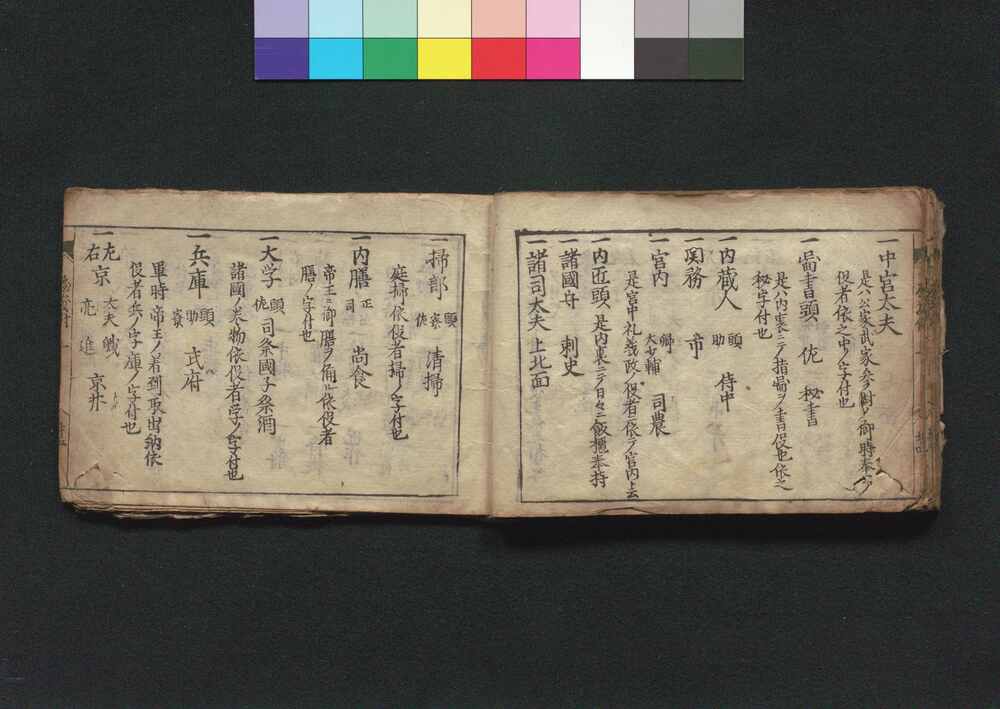 一中宮大夫
是ハ公家武家参内ノ御時奉
役者依之中ノ字付也
一圖書頭 佐 秘書
是ハ内裏ニテ指圖ヲ書役也依之
秘字付也
一内蔵人 頭 助 侍中
関務 市
一宮内 卿 大少輔 司農
是宮中礼義政ノ役者ニ依テ宮内ト云
一内匠頭 是内裏ニテ日々ニ飯櫃奉持
一諸國守 刺史
一諸司太夫 上北面
一掃部 頭 寮 佐 清掃
庭掃依役者掃ノ字付也
一内膳 正 司 尚食
帝王ニ御膳ヲ備ル依役者
膳ノ字付也
一大学 頭 佐 司祭國子祭酒
諸國ノ米物依役者学ノ字付也
一兵庫 頭 助 武府
軍時帝王ノ着到取出納依
役者兵ノ字庫ノ字付也
一左右京 大夫 亮 進 京兆